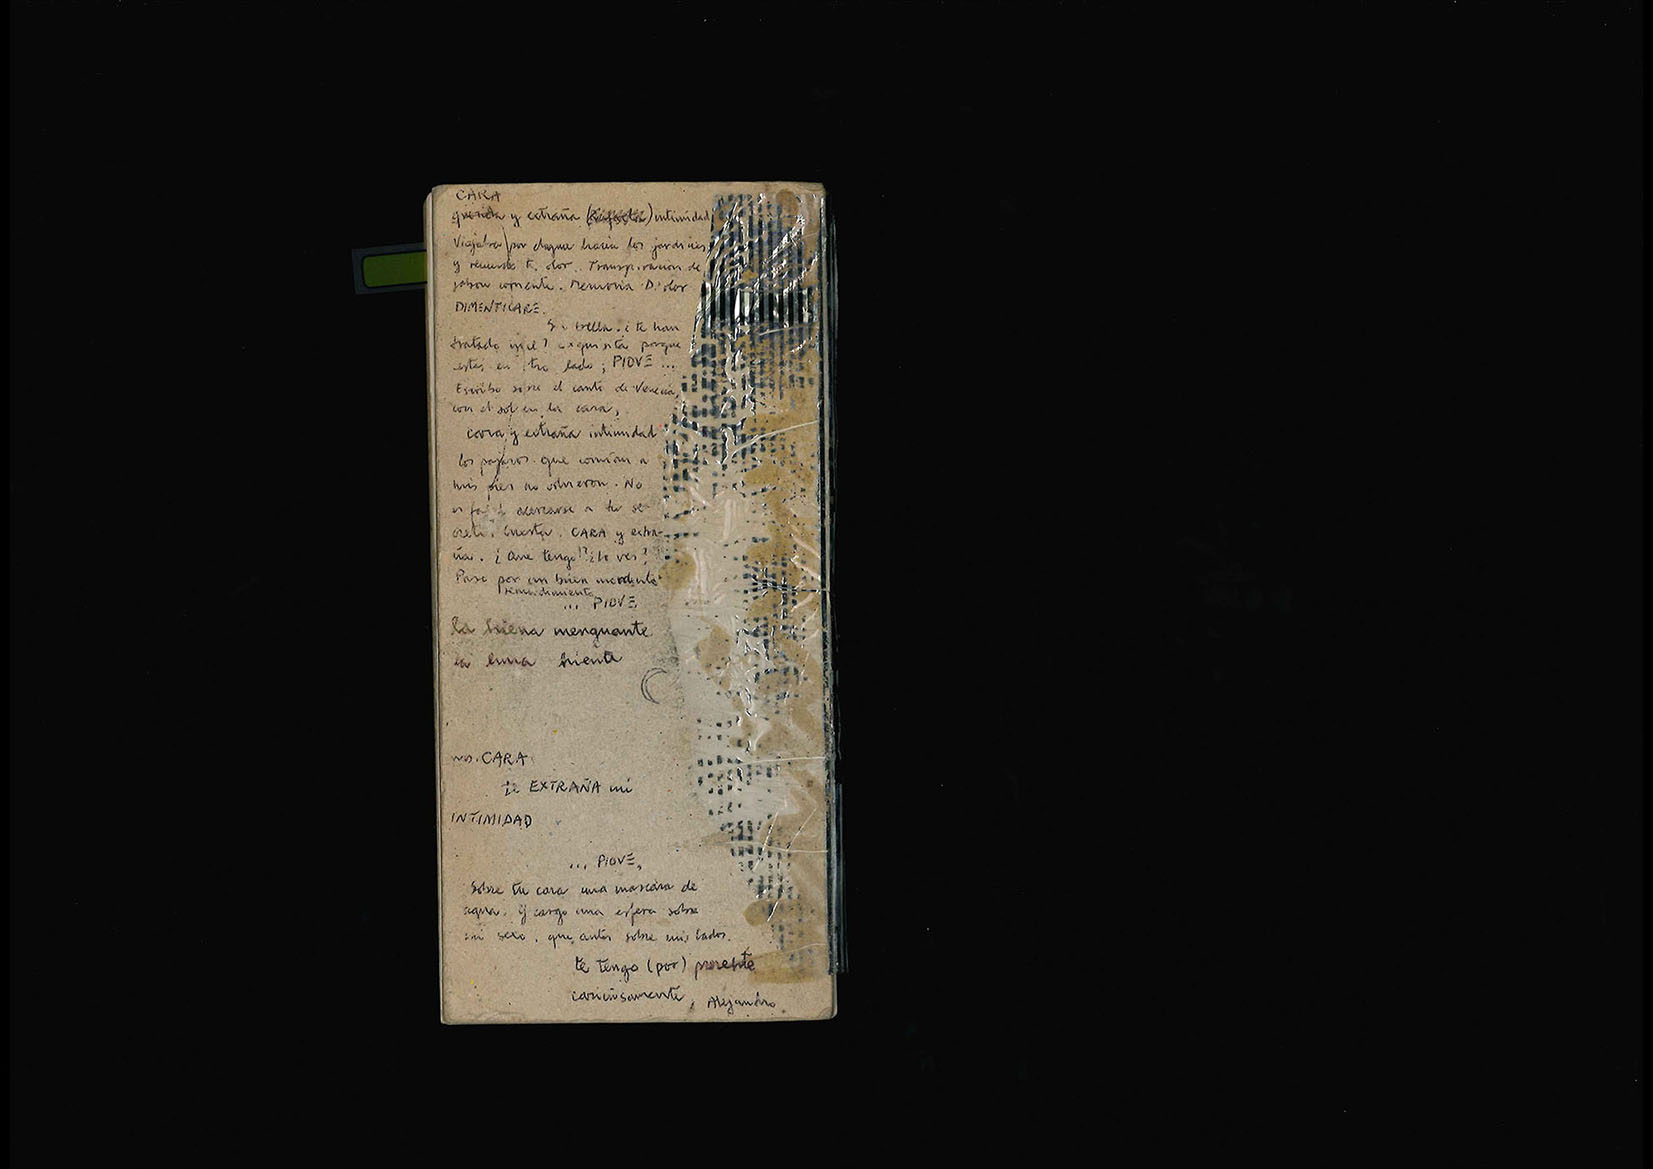 CARA
querida y extraña intimidad
Viajaba por el agua hacia los jardines
y recuerdo tu olor. Transpiración de
jabón corriente. Memoria D.olor
DIMENTICARE.
bella. ¿te han
tratado mal? exquisita porque
estás en otro lado; PIOVE ...
Escribo sobre el canto de Venecia,
con el sol en la cara,
cara y extraña intimidad
los pajaros que comían a
mis pies no volvieron. No
es facil acercarse a tu se-
creta. CARA y extra-
ña. ¿Que tengo? ¿lo ves?
Pase por un buen
... PIOVE
la hiena menguante
la luna
CARA
te EXTRAÑA mi
INTIMIDAD
... PIOVE,
Sobre tu cara una mascara de
agua. Y cargo una esfera sobre
mi sexo, que, antes sobre mis lados.
te tengo (por) presente
cariñosamente, Alejandro